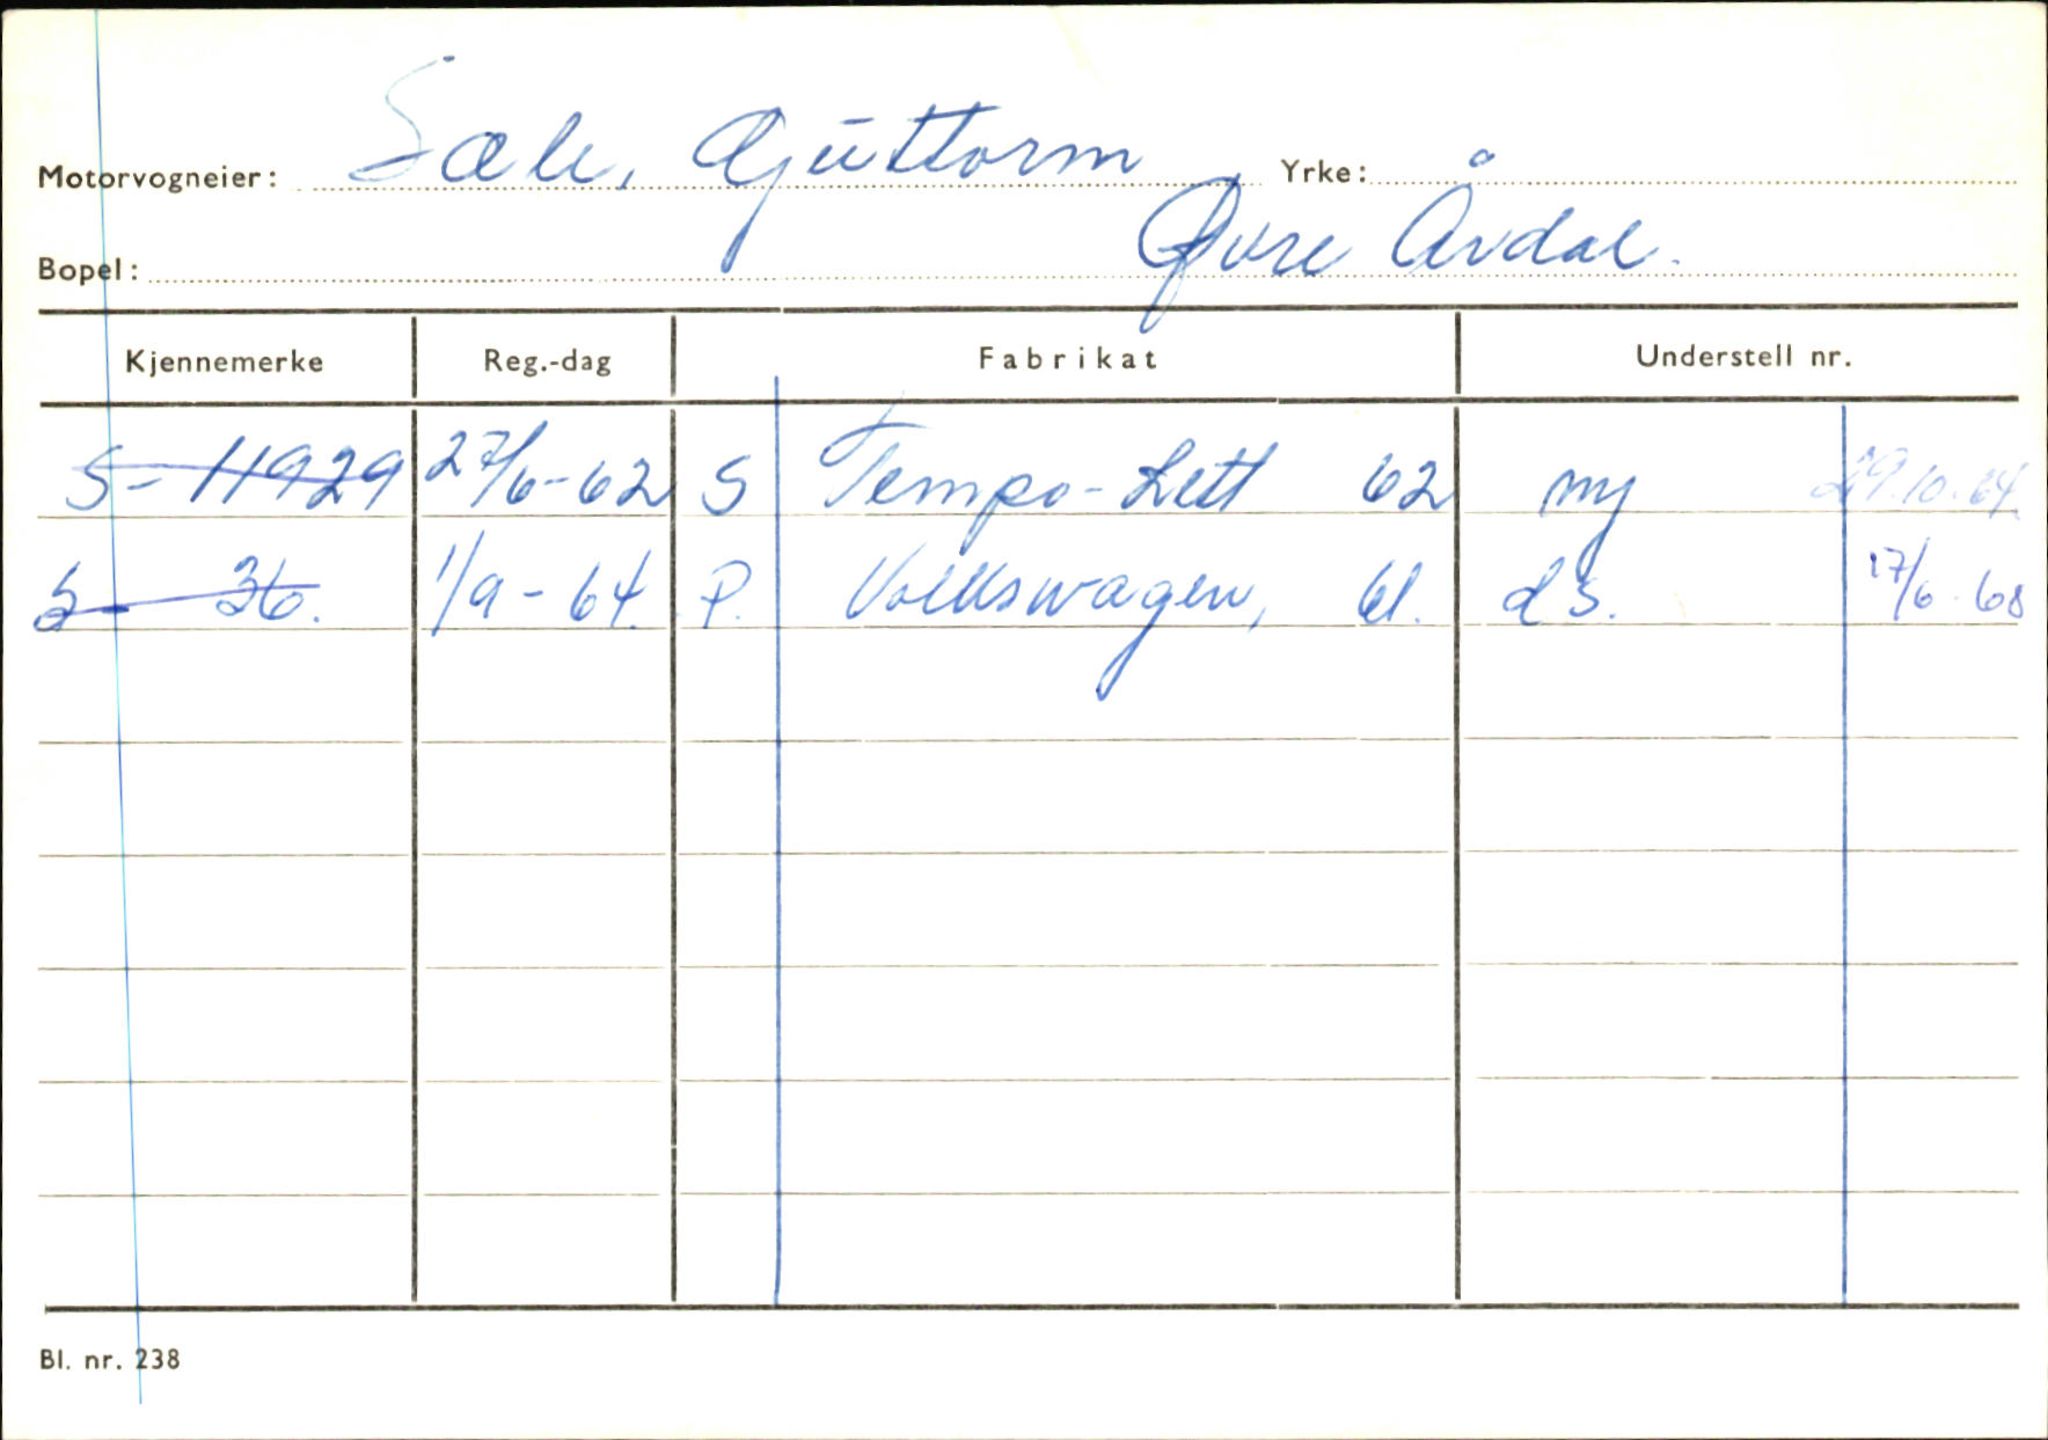 Motorvogneier: Sæle, Guttorm Yrke:
Bopel: Øvre Årdal.
Kjennemerke Reg.-dag Fabrikat Understell nr.
S- 11929 27/6-62 S Tempo-Lett 62 ny 29.10.64.
S- 36. 1/9-64. P. Volkswagen, 61. d s. 17/6-68
Bl. nr. 238